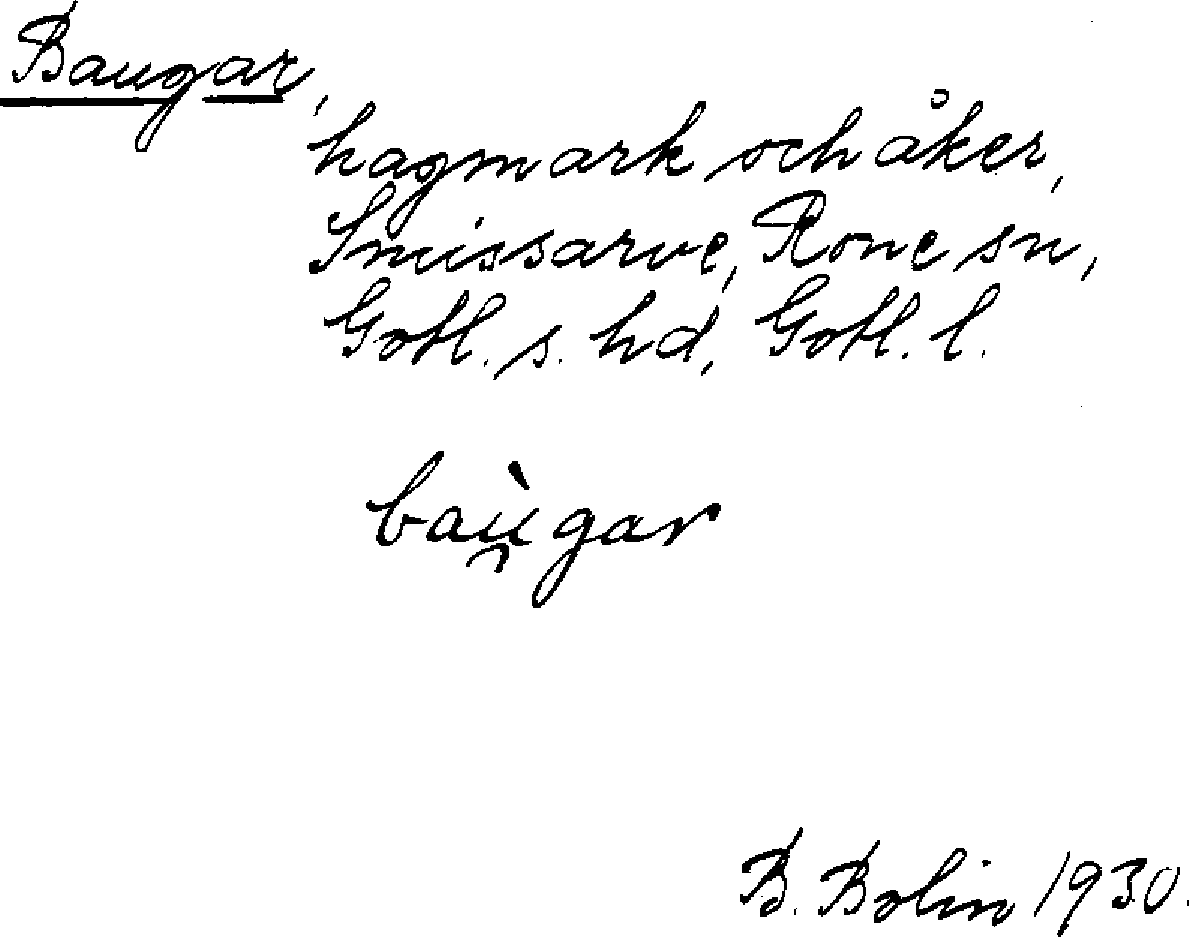 Baugar,
hagmark och åker,
Smissarve, Rone sn,
Gotl. s. hd, Gotl. l.
baù̯gar
B. Bolin 1930.